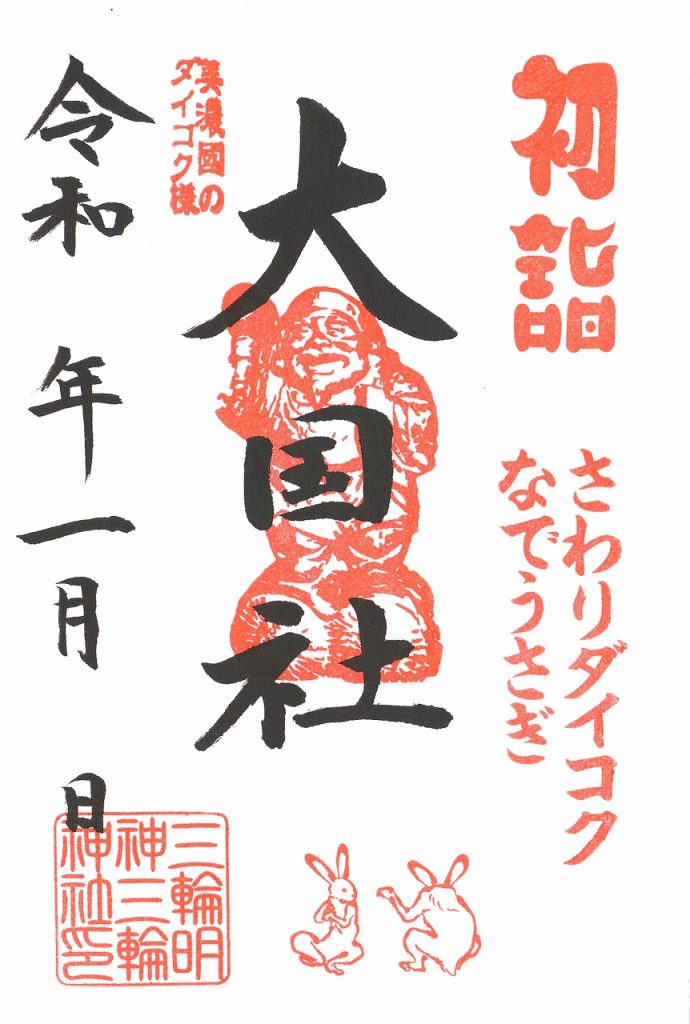 初詣
さわりダイコク
なでうさぎ
大国社
美濃國の
ダイコク様
令和 年一月 日
三輪明
神三輪
神社印